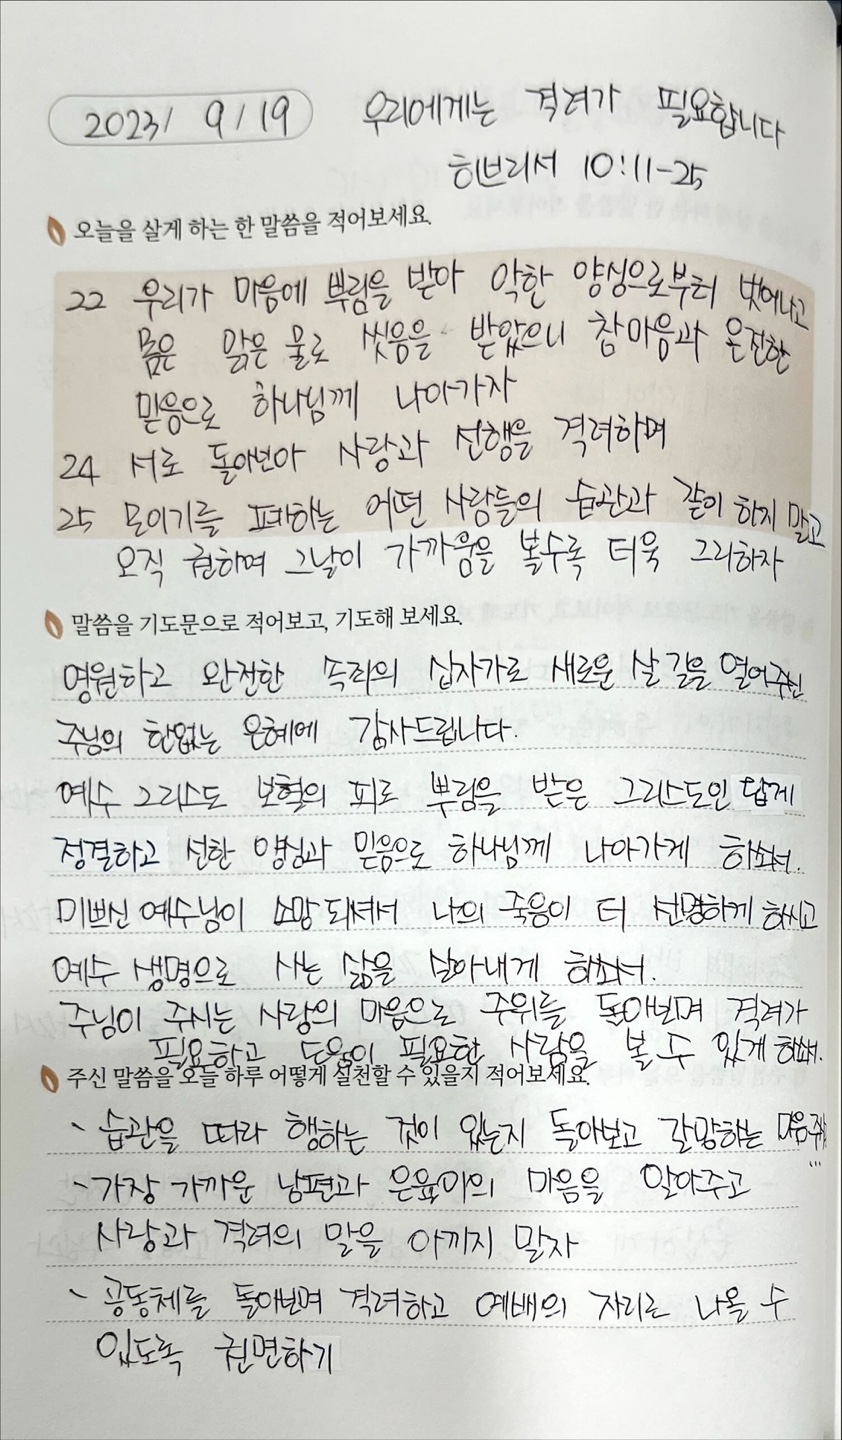 2023/ 9/19 우리에게는 격려가 필요합니다
히브리서 10:11-25
오늘을 살게 하는 한 말씀을 적어보세요.
22 우리가 마음에 뿌림을 받아 악한 양심으로부터 벗어나고
몸은 맑은 물로 씻음을 받았으니 참마음과 온전한
믿음으로 하나님께 나아가자
24 서로 돌아보아 사랑과 선행을 격려하며
25 모이기를 폐하는 어떤 사람들의 습관과 같이 하지 말고
오직 권하며 그날이 가까움을 볼수록 더욱 그리하자
말씀을 기도문으로 적어보고, 기도해 보세요.
영원하고 완전한 속죄의 십자가로 새로운 살 길을 열어주신
주님의 한없는 은혜에 감사드립니다.
예수 그리스도 보혈의 피로 뿌림을 받은 그리스도인 답게
정결하고 선한 양심과 믿음으로 하나님께 나아가게 하소서.
미쁘신 예수님이 소망 되셔서 나의 죽음이 더 선명하게 하시고
예수 생명으로 사는 삶을 살아내게 하소서.
주님이 주시는 사랑의 마음으로 주위를 돌아보며 격려가
필요하고 도움이 필요한 사람을 볼 수 있게 하소서.
주신 말씀을 오늘 하루 어떻게 실천할 수 있을지 적어보세요.
- 습관을 따라 행하는 것이 있는지 돌아보고 갈망하는 마음
- 가장 가까운 남편과 은율이의 마음을 알아주고
사랑과 격려의 말을 아끼지 말자
- 공동체를 돌아보며 격려하고 예배의 자리로 나올 수
있도록 권면하기